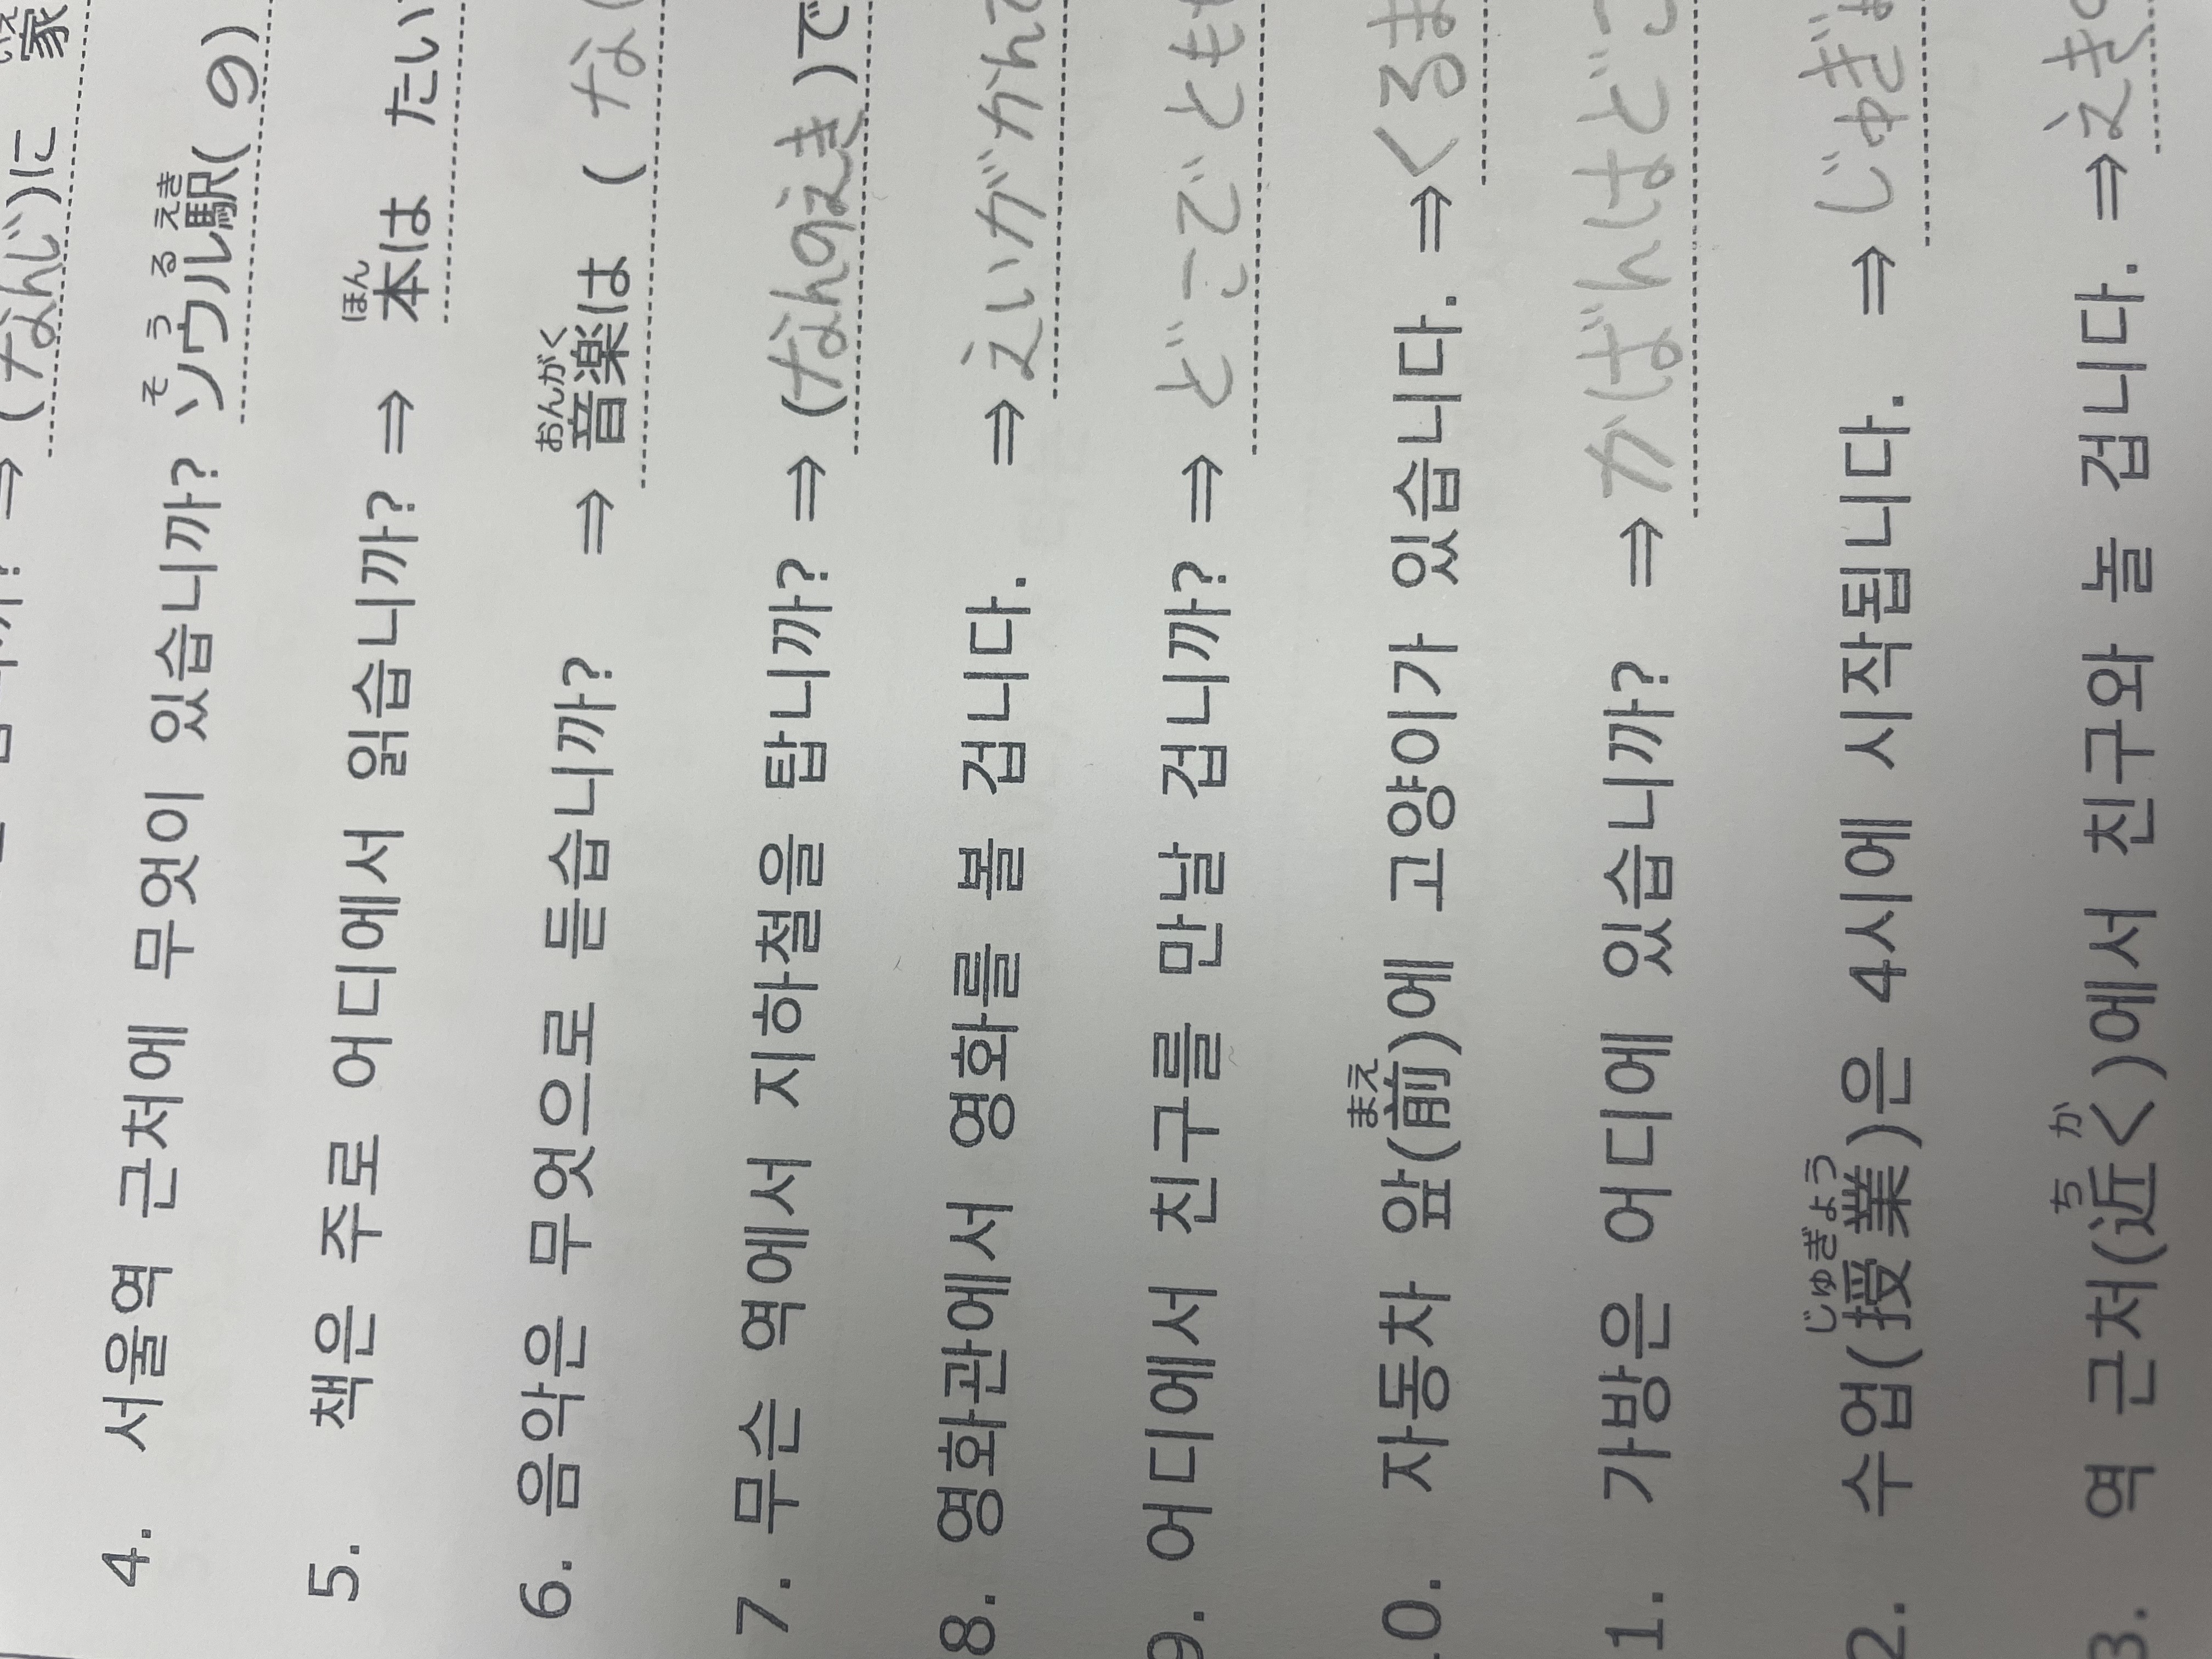 (なんじ)に 家
4. 서울역 근처에 무엇이 있습니까? ソウル駅( の)
5. 책은 주로 어디에서 읽습니까? ⇒ 本は たい
6. 음악은 무엇으로 듣습니까? ⇒ 音楽は ( な
7. 무슨 역에서 지하철을 탑니까? ⇒ (なんのえき)で
8. 영화관에서 영화를 볼 겁니다. ⇒ えいがかんで
9. 어디에서 친구를 만날 겁니까? ⇒ どこでとも
10. 자동차 앞(前)에 고양이가 있습니다. ⇒ くるま
1. 가방은 어디에 있습니까? ⇒ かばんはどこ
2. 수업(授業)은 4시에 시작됩니다. ⇒ じゅぎょ
3. 역 근처(近く)에서 친구와 놀 겁니다. ⇒ えきの